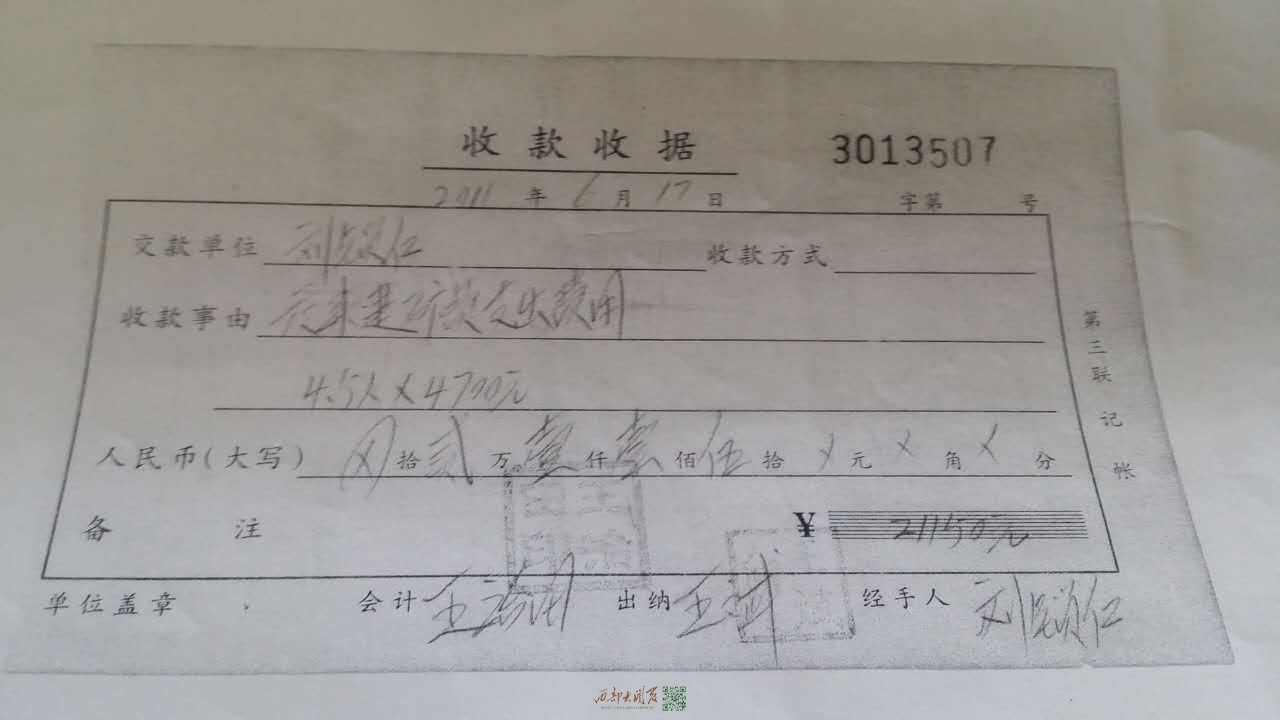 收款收据 3013507
2011年6月17日 字第 号
交款单位 刘 仁 收款方式
收款事由 支出费用
4.5人×4700元
人民币(大写) 拾贰万壹仟壹佰伍拾×元×角×分
备注 ¥ 21150元
单位盖章 会计 王 出纳 王 经手人 刘 仁
第三联 记帐
西部大开发